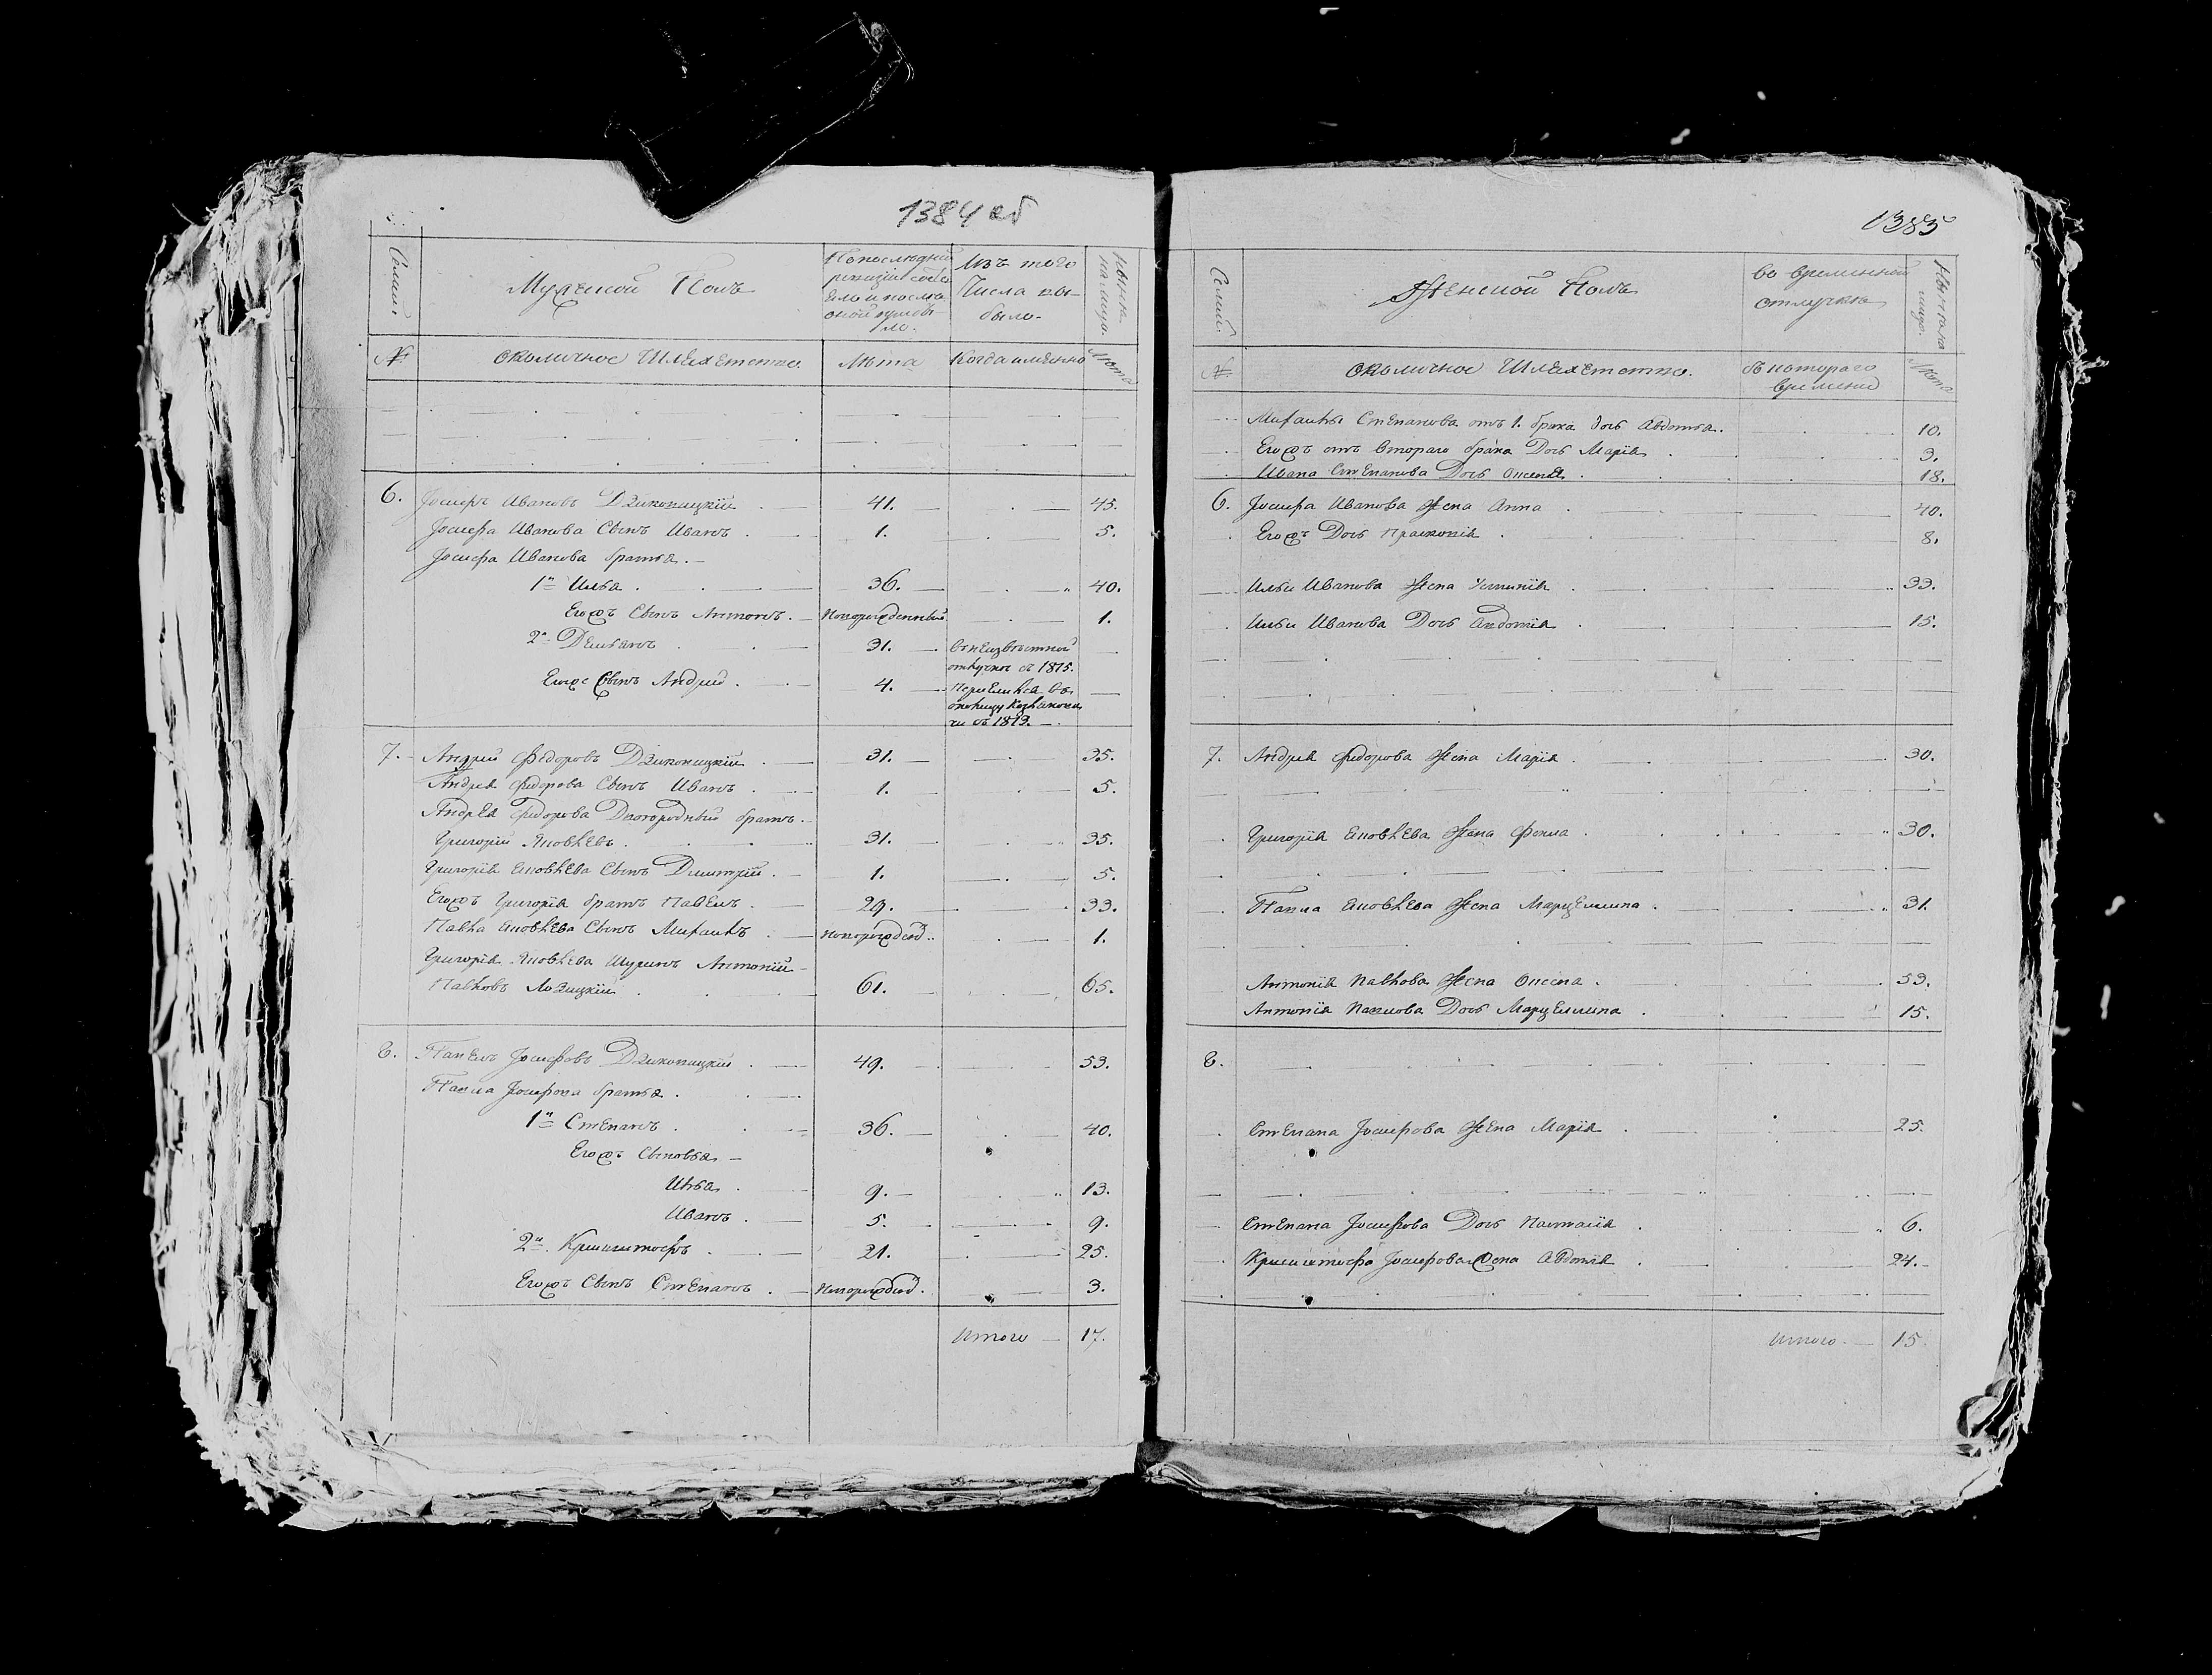 1384 об
Семьи
Мужеской Полъ
По последней
ревизіи состо
яло и после
оной прибы-
ло.
Изъ того
Числа вы-
было.
Ныне
на лицо.
№
околичное Шляхетство.
Лѣта
Когда именно
Лѣта
6. Іосифъ Ивановъ Дзиконицкій 41. 45.
Іосифа Иванова Сынъ Иванъ 1. 5.
Іосифа Иванова братья.
1й Илья 36. 40.
Егожъ Сынъ Антонъ. Новорожденный 1.
2й Демьянъ 31. въ неизвѣстной
отлучке съ 1815.
Егоже Сынъ Андрей 4. Переселился въ
околицу
съ 1813.
7. Андрей Федоровъ Дзиконицкій 31. 35.
Андрея Федорова Сынъ Иванъ 1. 5.
Андрея Федорова Двоюродный братъ
Григорій Яковлевъ 31. 35.
Григорія Яковлева Сынъ Дмитрій 1. 5.
Егожъ Григорія братъ Павелъ 29. 33.
Павла Яковлева Сынъ Михаилъ новорожд. 1.
Григорія Яковлева Шуринъ Антоній
Павловъ Лозицкій 61. 65.
8. Павелъ Іосифовъ Дзиконицкій 49. 53.
Павла Іосифова братья
1й Степанъ 36. 40.
Егожъ Сыновья
Илья 9. 13.
Иванъ 5. 9.
2й Криштофъ 21. 25.
Егожъ Сынъ Степанъ новорожд. 3.
Итого 17.
1385
Семьи
Женской Полъ
Во временной
отлучке
Ныне на
лицо.
№
околичное Шляхетство.
съ котораго
времени
Лѣта
Михаилы Степанова отъ 1. брака дочь Авдотья. 10.
Егожъ отъ втораго брака Дочь Марія 3.
Ивана Степанова Дочь Оксеня 18.
6. Іосифа Иванова Жена Анна 40.
Егожъ Дочь Прасковія 8.
Ильи Иванова Жена Устинія 33.
Ильи Иванова Дочь Авдотія 15.
7. Андрея Федорова Жена Марія 30.
Григорія Яковлева Жена Фекла 30.
Павла Яковлева Жена Марцелина 31.
Антонія Павлова Жена Оксена 53.
Антонія Павлова Дочь Марцелина 15.
8.
Степана Іосифова Жена Марія 25.
Степана Іосифова Дочь Настасія 6.
Криштофа Іосифова Жена Авдотія 24.
Итого 15